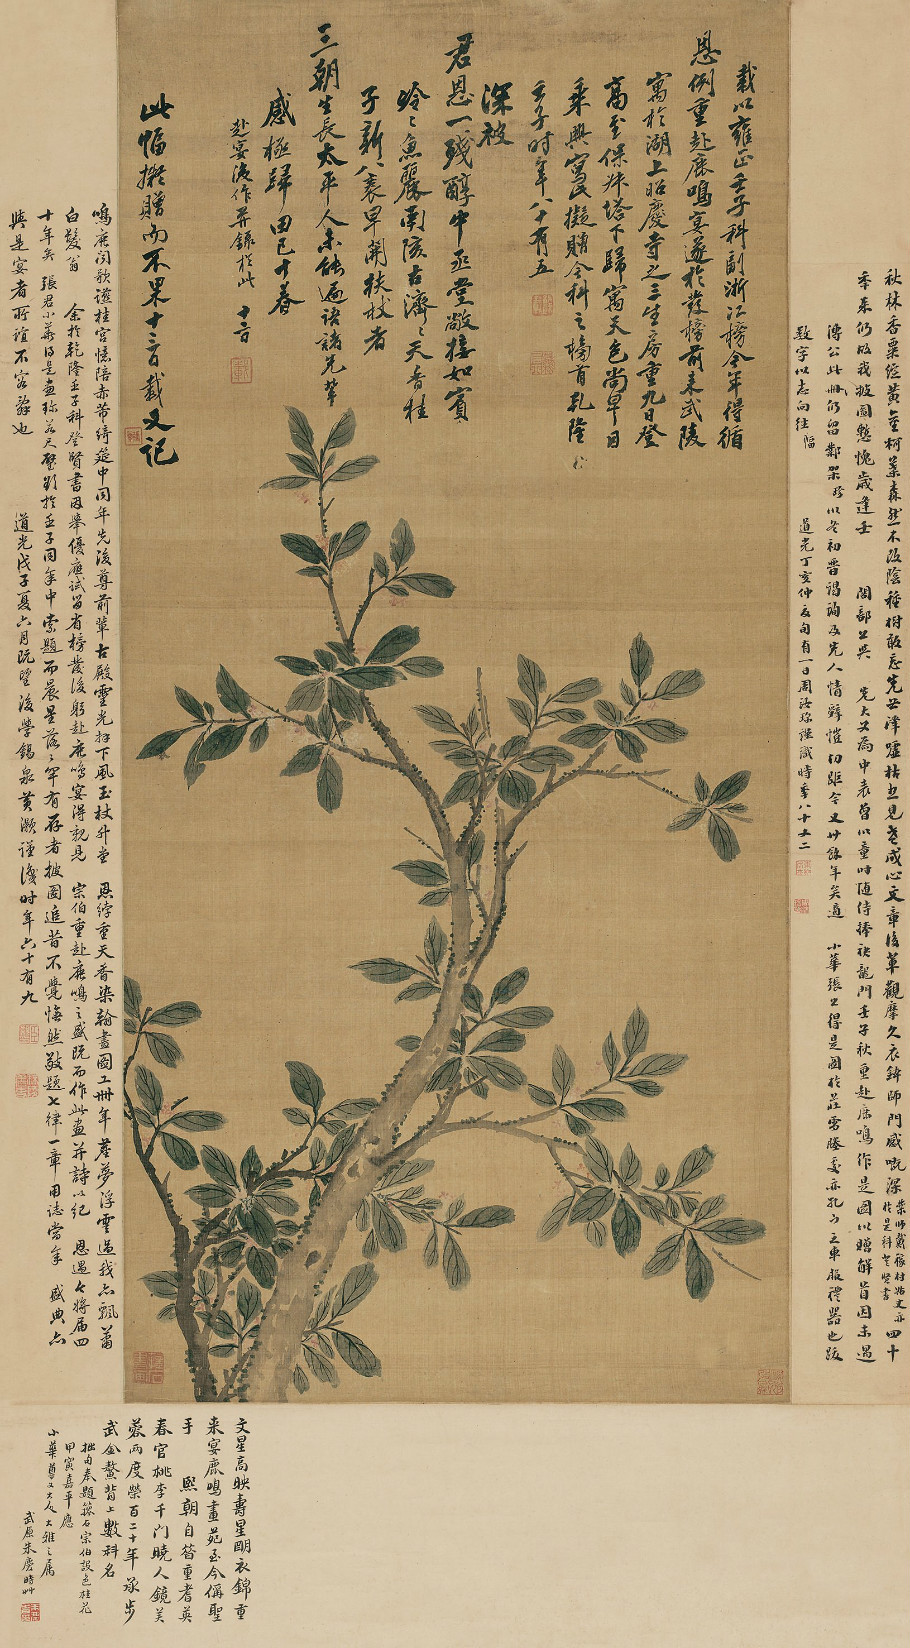 載以雍正壬子科副浙江榜今年得循
恩例重赴鹿鳴宴遂於發榜前来武陵
寓於湖上昭慶寺之三生房重九日登
高至保叔塔下歸寓天色尚早日
乘興寫此擬贈今科之榜首乾隆
壬子時年八十有五
深被
君恩一殘醇中丞堂敞接如賓
伶〻魚麗南陔古濟〻天香桂
子新八袠早開扶杖者
三朝生長太平人未能遍語諸先輩
感極歸田已十春
赴宴後作并錄於此 十二日
此幅擬贈而不果十三日載又記
秋林香粟綻黃金柯葉森然不改陰種樹敢忘先世澤
老成心文章後草觀摩久衣鉢師門感嘅深
四十
年来仍似我披圖慙愧歲逢壬
先大父為中表曾以童時隨侍捧袂龍門壬子秋重赴鹿鳴作是圖以贈解首因未遇
傳公此冊仍留鄴架
小華張君得是圖於
致字以志向往
道光丁亥仲夏旬有一日周
謹識時年八十又二
鳴鹿閑歌讌桂宮憶陪赤芾綺筵中同年先後尊前輩古殿靈光拜下風玉杖升堂 恩綍重天香染翰畫圖工卌年塵夢浮雲過我亦飄蕭
白髮翁 余於乾隆壬子科登賢書因舉優應試留省榜發後躬赴鹿鳴宴得親見 宗伯重赴鹿鳴之盛既而作此畫并詩以紀 恩遇今將屆四
十年矣 張君小華得是畫珍若尺璧斵於壬子同年中索題而晨星落〻罕有存者披圖追昔不覺憮然敬題七律一章用誌當年 盛典亦
與是宴者所誼不容辭也 道光戊子夏六月既望後學錫泉黃灝謹識時年六十有九
文星高映壽星明衣錦重
来宴鹿鳴畫苑至今偁聖
手 熙朝自昔重耆英
春官桃李千門曉人鏡芙
蓉兩度榮百二十年承步
武金鰲背上數科名
拙句奉題蘀石宗伯設色桂花
甲寅嘉平應
小華尊丈大人大雅之屬
武原朱